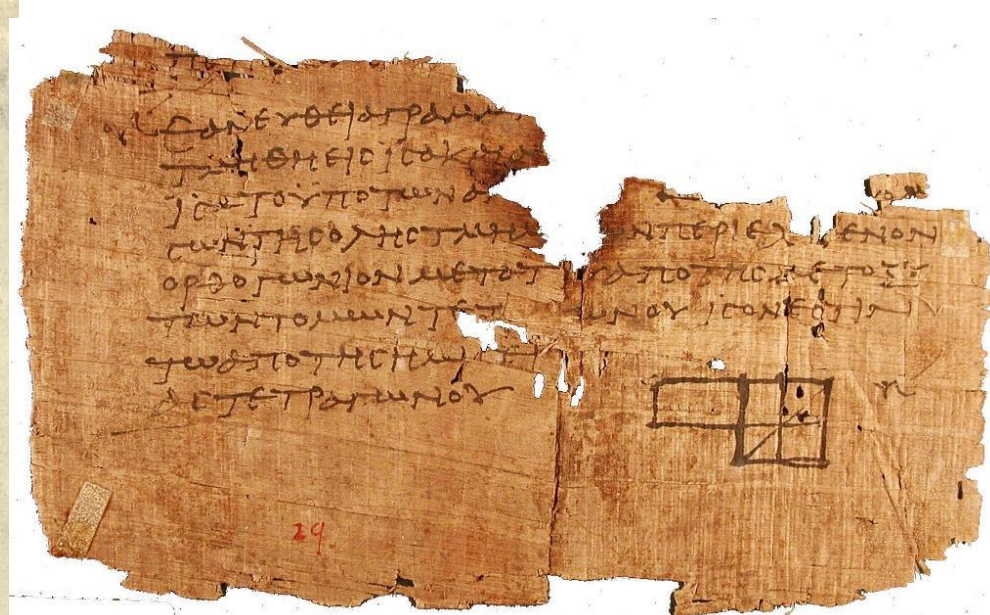 ΕΑΝ ΕΥΘΕΙΑ ΓΡΑΜΜ
ΤΜΗΘΗ ΕΙϹ ΙϹΑ ΚΑΙ ΑΝ
ΙϹΑ ΤΟ ΥΠΟ ΤΩΝ ΑΝ
ϹΩΝ ΤΗϹ ΟΛΗϹ ΤΜΗΜ ΩΝ ΠΕΡΙΕΧ ΜΕΝΟΝ
ΟΡΘΟΓΩΝΙΟΝ ΜΕΤΑ ΤΟΥ ΑΠΟ ΤΗϹ ΜΕΤΟΞΥ
ΤΩΝ ΤΟΜΩΝ ΤΕΤ ΩΝΟΥ ΙϹΟΝ ΕϹΤΙΝ
ΤΩ ΑΠΟ ΤΗϹ ΗΜΙϹΕΙ
ΑϹ ΤΕΤΡΑΓΩΝΟΥ
29